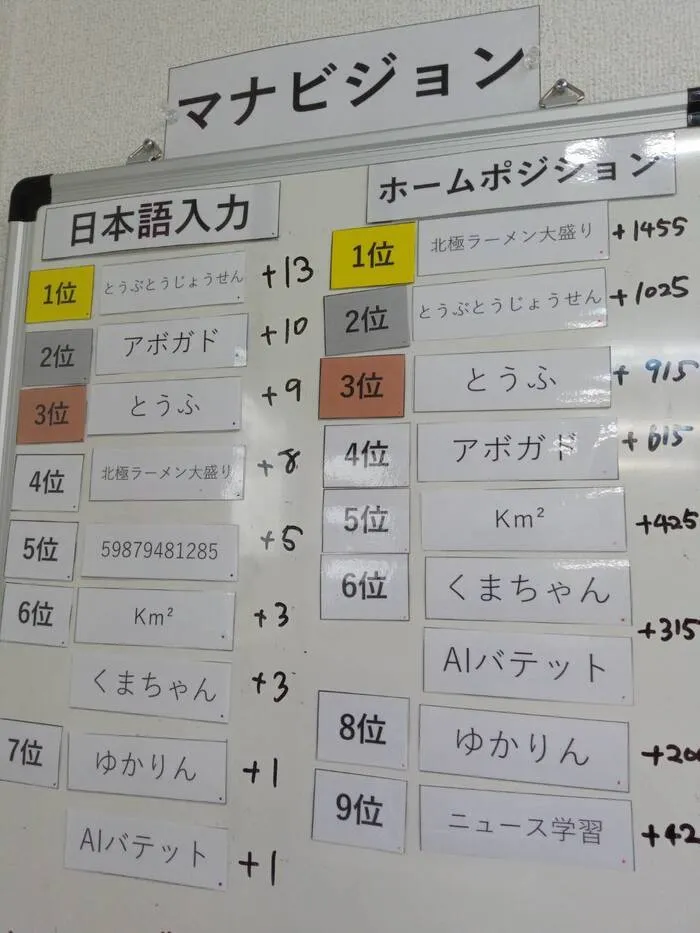 マナビジョン
日本語入力
1位 とうぷとうじょうせん +13
2位 アボガド +10
3位 とうふ +9
4位 北極ラーメン大盛り +8
5位 59879481285 +5
6位 Km² +3
くまちゃん +3
7位 ゆかりん +1
AIバテット +1
ホームポジション
1位 北極ラーメン大盛り +1455
2位 とうぷとうじょうせん +1025
3位 とうふ +915
4位 アボガド +615
5位 Km² +425
6位 くまちゃん
+315
AIバテット
8位 ゆかりん
9位 ニュース学習 +42